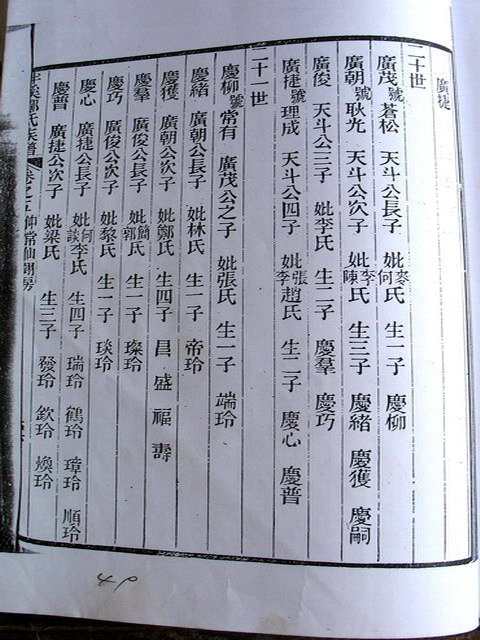 廣捷
二十世
廣茂號蒼松 天斗公長子 妣麥何氏 生一子 慶柳
廣朝號耿光 天斗公次子 妣李陳氏 生三子 慶緒 慶獲 慶嗣
廣俊 天斗公三子 妣李氏 生二子 慶羣 慶巧
廣捷號理成 天斗公四子 妣張李趙氏 生二子 慶心 慶普
二十一世
慶柳號常有 廣茂公之子 妣張氏 生一子 端玲
慶緒 廣朝公長子 妣林氏 生一子 帝玲
慶獲 廣朝公次子 妣鄭氏 生四子 昌 盛 福 壽
慶羣 廣俊公長子 妣簡郭氏 生一子 璨玲
慶巧 廣俊公次子 妣黎氏 生一子 琰玲
慶心 廣捷公長子 妣何談李氏 生四子 瑞玲 鶴玲 璋玲 順玲
慶普 廣捷公次子 妣梁氏 生三子 發玲 欽玲 煥玲
氏族譜